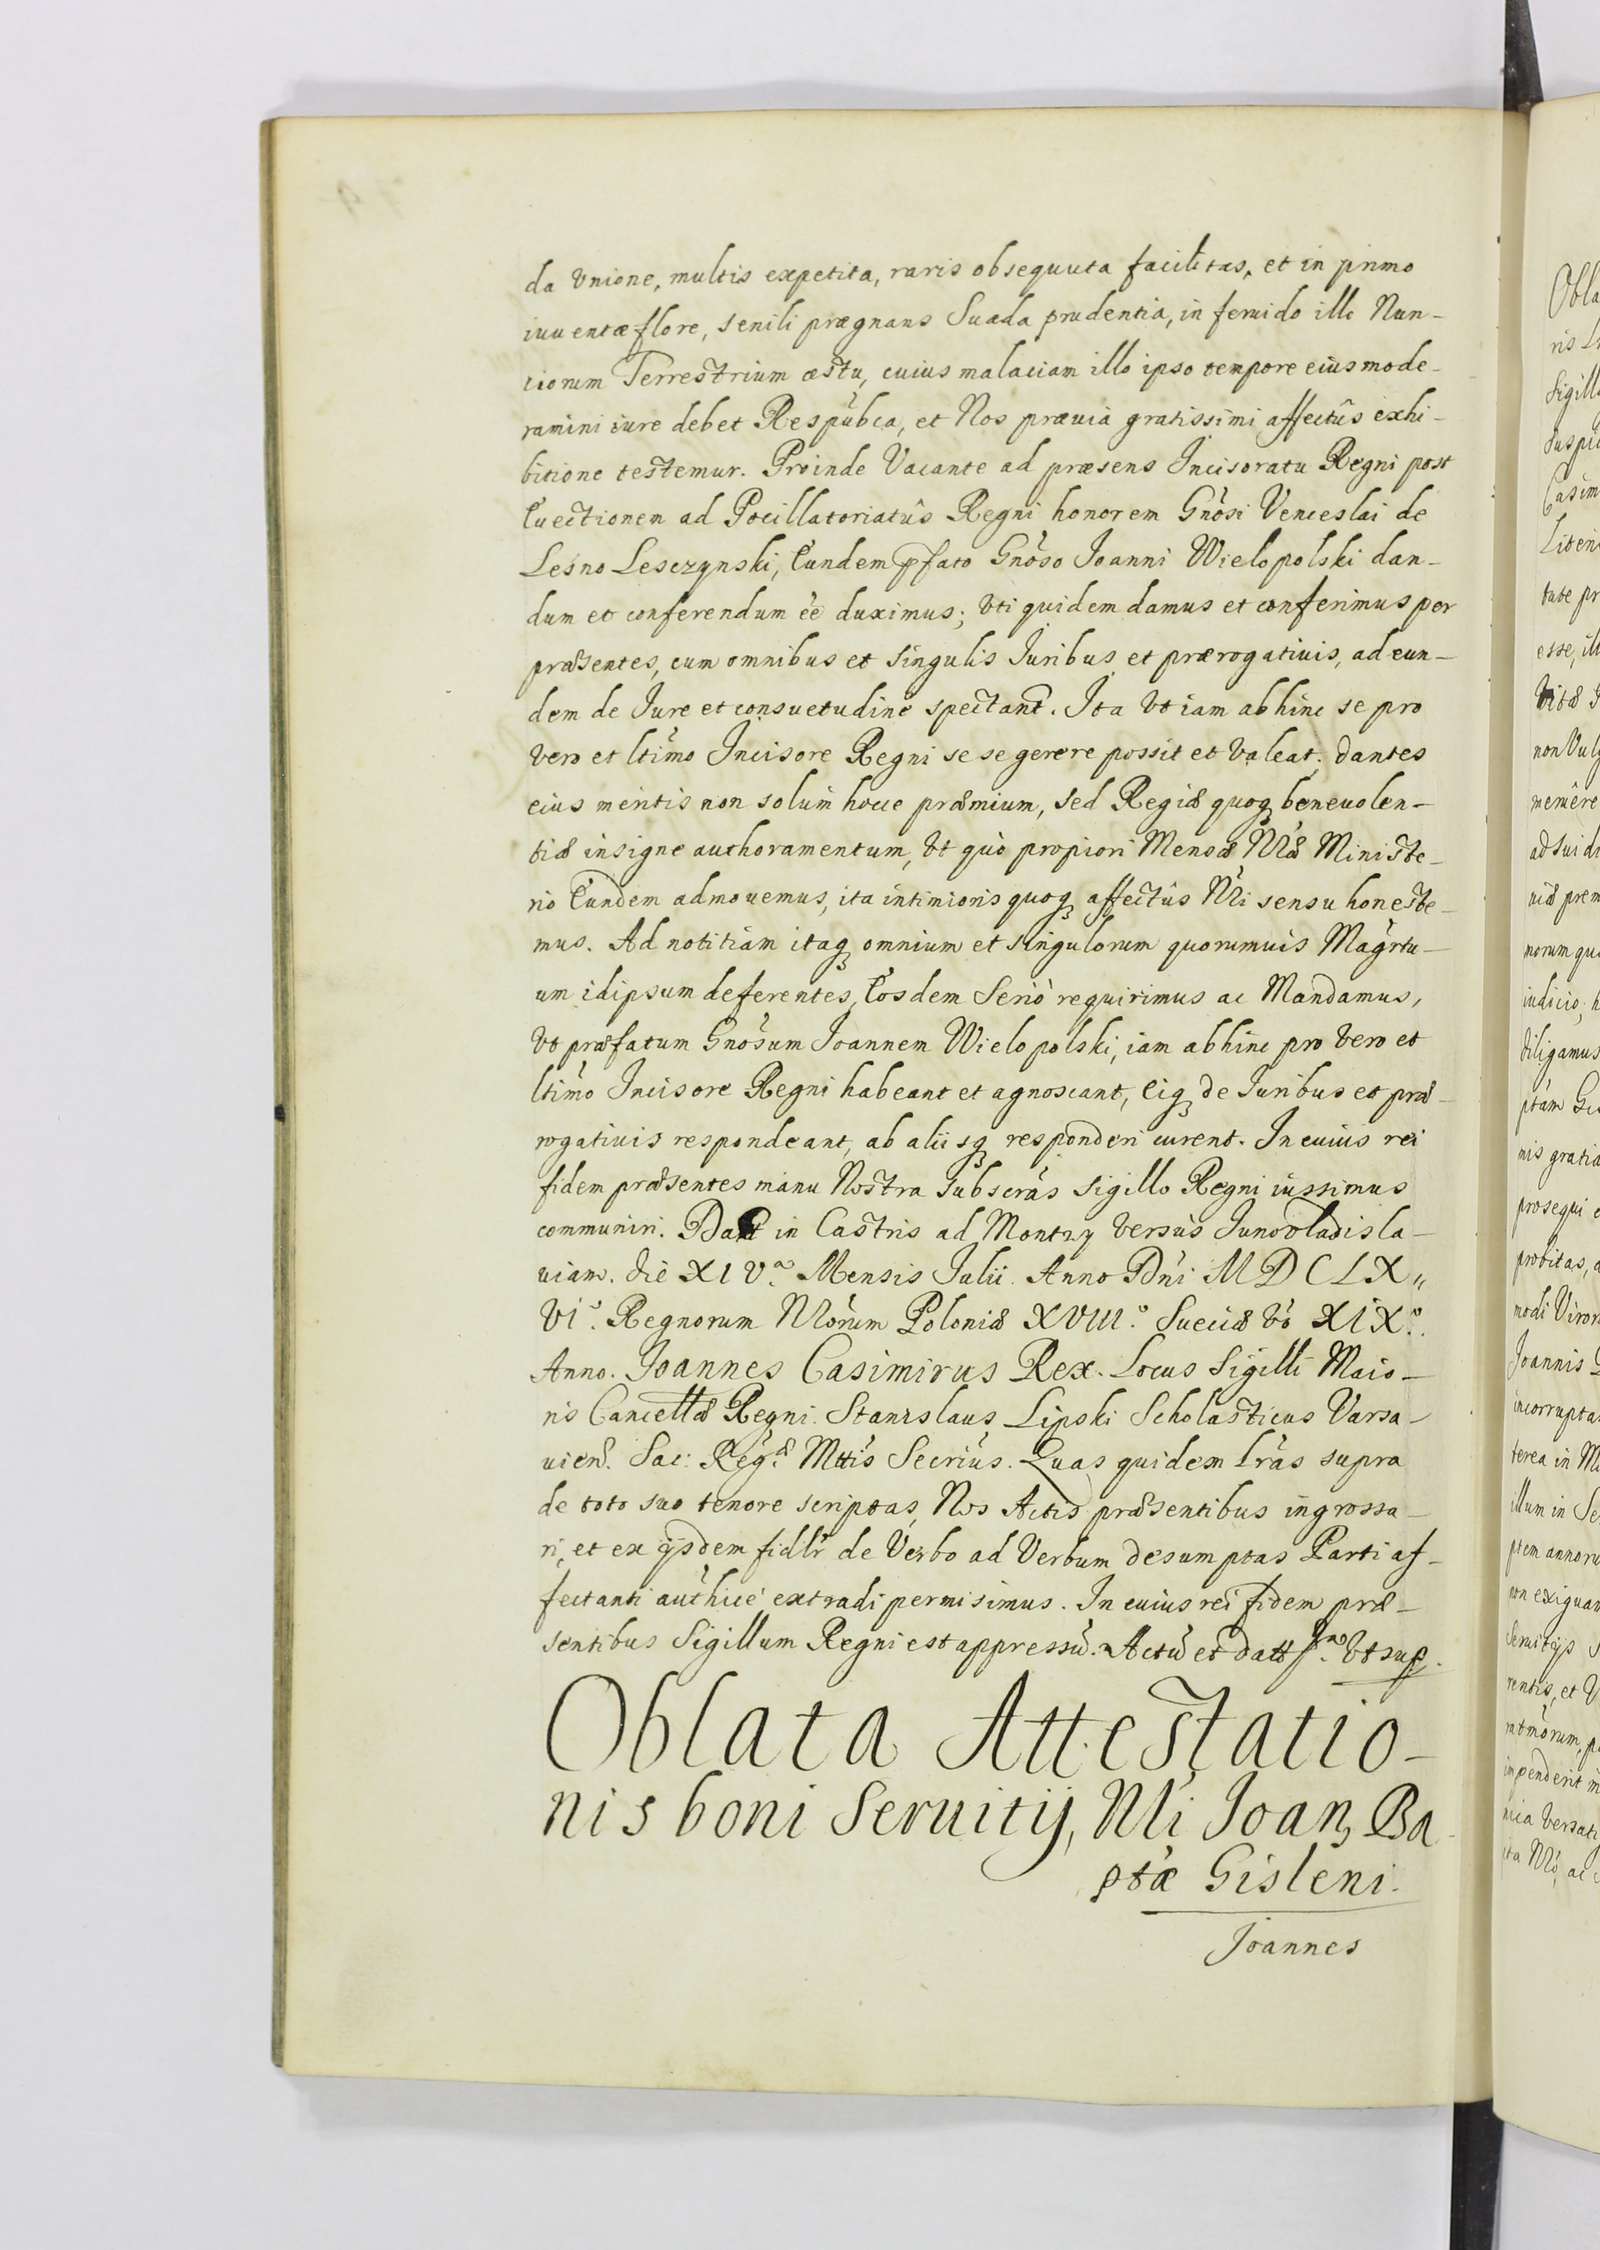 da Vnione, multis expetita, raris obsequuta facilitas, et in primo
iuuentæ flore, senili prægnans Suada prudentia, in feruido illo Nun-
ciorum Terrestrium æstu, cuius malaciam illo ipso tempore eius mode-
ramini iure debet Respubca, et Nos præuia gratissimi affectûs exhi-
bitione testemur. Proinde Vacante ad præsens Incisoratu Regni post
Euectionem ad Pocillatoriatûs Regni honorem Gnosi Venceslai de
Leśno Lesczynski, Eundem pfato Gnoso Joanni Wielopolski dan-
dum et conferendum eê duximus; Vti quidem damus et conferimus per
præsentes, cum omnibus et singulis Juribus et prærogatiuis, ad eun-
dem de Jure et consuetudine spectant. Ita Vt iam abhinc se pro
vero et ltimo Incisore Regni se se gerere possit et Valeat. Dantes
eius meritis non solum hocce præmium, sed Regiæ quoq beneuolen-
tiæ insigne authoramentum, Vt quò propiori Mensæ Nræ Ministe-
rio Eundem admouemus, ita intimioris quoq affectûs Nri sensu honeste-
mus. Ad notitiam itaq omnium et singulorum quorumuis Magrtu-
um idipsum deferentes, Eosdem Seriò requirimus ac Mandamus,
Vt præfatum Gnosum Joannem Wielopolski, iam abhinc pro Vero et
ltimo Incisore Regni habeant et agnoscant, Eiq de Juribus et præ-
rogatiuis respondeant, ab aliisq responderi curent. In cuius rei
fidem præsentes manu Nostra subscras Sigillo Regni iussimus
communiri. Dat in Castris ad Montzy versus Junovladisla-
uiam. die XIVa. Mensis Julii. Anno Dni MDCLX
VIo. Regnorum Nrorum Poloniæ XVIIIo. Sueciæ Vo XIXo.
Anno. Joannes Casimirus Rex. Locus Sigilli Maio-
ris Cancellæ Regni. Stanislaus Lipski Scholasticus Varsa-
uien. Sac: Regæ. Mttis Secrius. Quas quidem lras supra
de toto suo tenore scriptas, Nos Actis præsentibus ingrossa-
ri, et ex ijsdem fidlr de Verbo ad Verbum desumptas Parti af-
fectanti authice extradi permisimus. In cuius rei fidem præ-
sentibus Sigillum Regni est appressū. Actū et datt Vt sup.
Oblata Attestatio-
nis boni Seruitij, Nri Joan Ba-
ptæ Gisleni.
Joannes